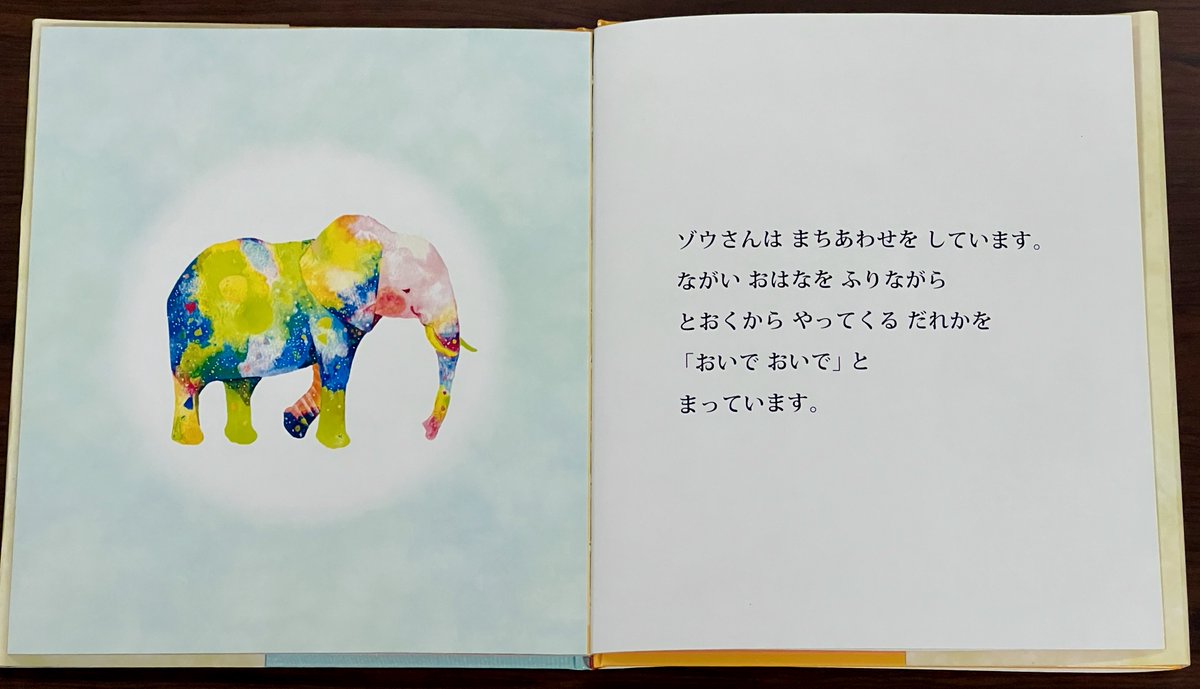 ゾウさんは まちあわせを しています。
ながい おはなを ふりながら
とおくから やってくる だれかを
「おいで おいで」と
まっています。